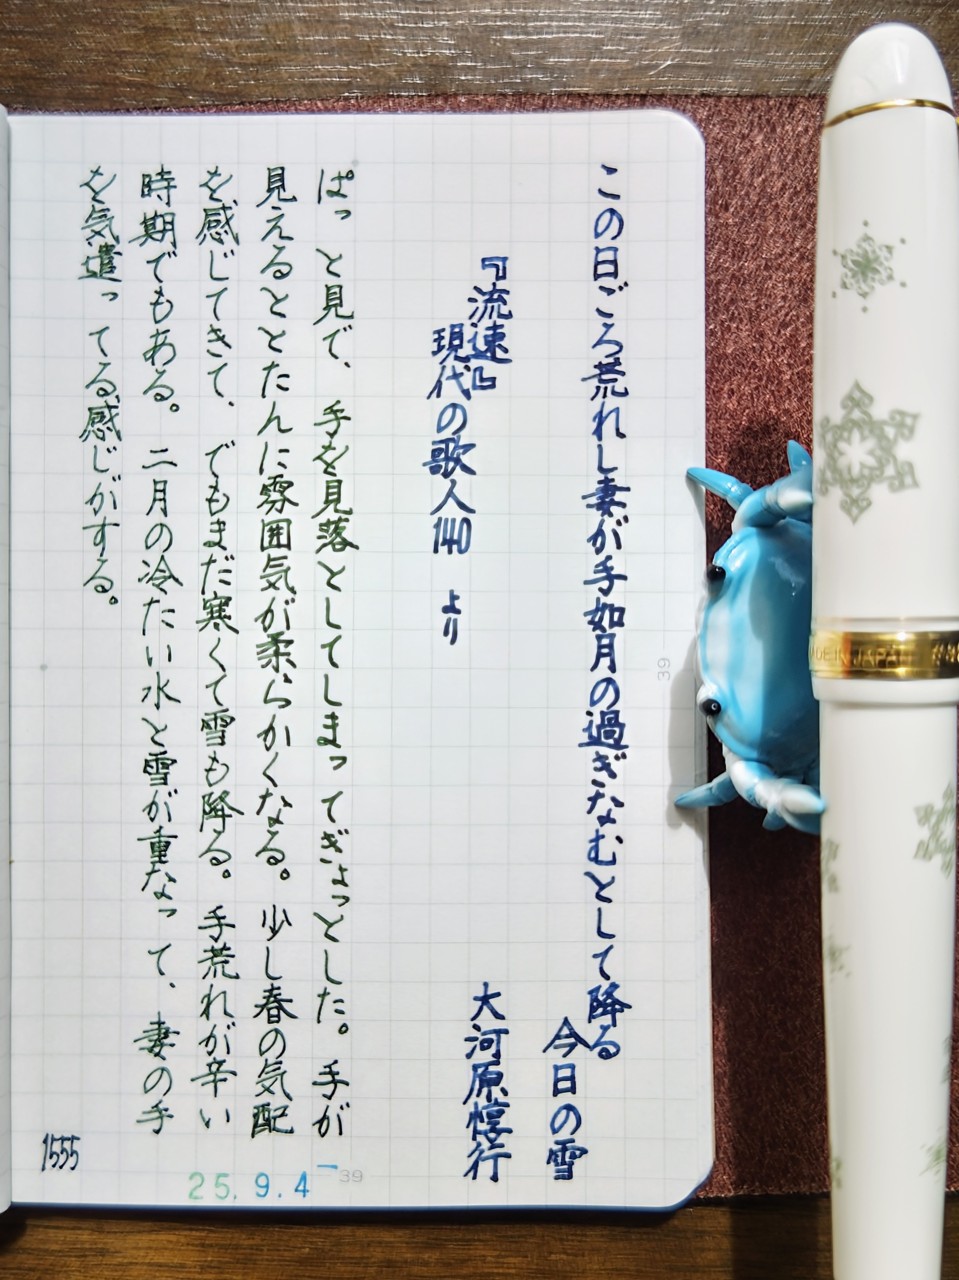 この日ごろ荒れし妻が手如月の過ぎなむとして降る
今日の雪
『流速』 大河原惇行
現代の歌人140 より
ぱっと見で、手を見落としてしまってぎょっとした。手が
見えるととたんに雰囲気が柔らかくなる。少し春の気配
を感じてきて、でもまだ寒くて雪も降る。手荒れが辛い
時期でもある。二月の冷たい水と雪が重なって、妻の手
を気遣ってる感じがする。
1555
25.9.4
39
39
JAPAN